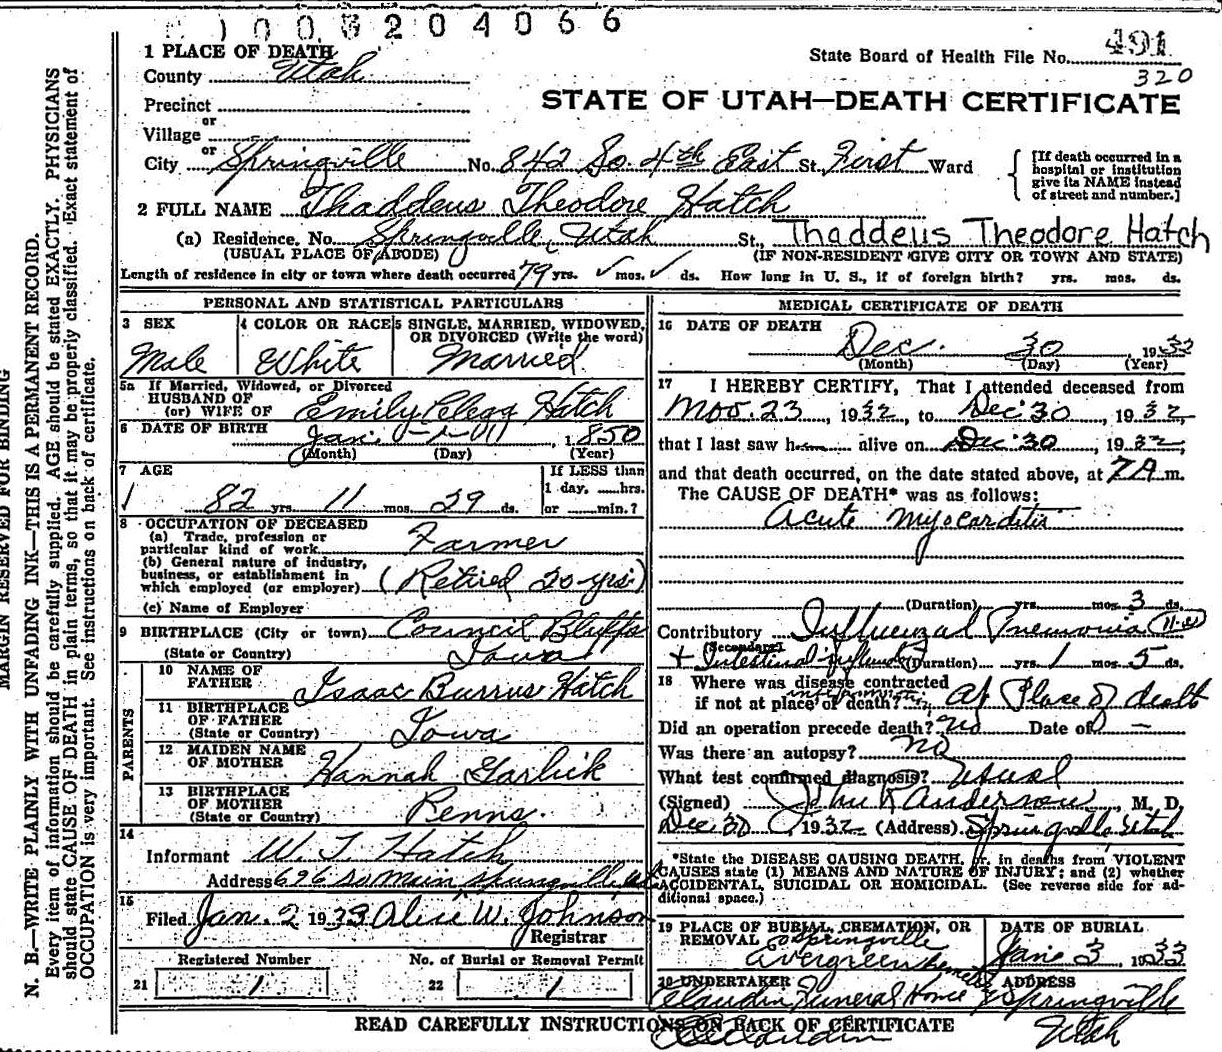 1003204066
1 PLACE OF DEATH
State Board of Health File No. 491
320
County Utah
STATE OF UTAH—DEATH CERTIFICATE
Precinct
or
Village
or
City Springville No. 842 So. 4th East St. First Ward
[If death occurred in a hospital or institution give its NAME instead of street and number.]
2 FULL NAME Thaddeus Theodore Hatch
(a) Residence, No. Springville, Utah St., Thaddeus Theodore Hatch
(USUAL PLACE OF ABODE) (IF NON-RESIDENT GIVE CITY OR TOWN AND STATE)
Length of residence in city or town where death occurred 79 yrs. ✓ mos. ✓ ds. How long in U. S., if of foreign birth? yrs. mos. ds.
PERSONAL AND STATISTICAL PARTICULARS
3 SEX
Male
4 COLOR OR RACE
White
5 SINGLE, MARRIED, WIDOWED, OR DIVORCED (Write the word)
Married
5a If Married, Widowed, or Divorced
HUSBAND OF
(or) WIFE OF Emily Clegg Hatch
6 DATE OF BIRTH Jan. 1850
(Month) (Day) (Year)
7 AGE
82 yrs. 11 mos. 29 ds.
If LESS than
1 day, hrs.
or min.?
8 OCCUPATION OF DECEASED
(a) Trade, profession or
particular kind of work Farmer
(b) General nature of industry,
business, or establishment in
which employed (or employer) (Retired 20 yrs.)
(c) Name of Employer
9 BIRTHPLACE (City or town) Council Bluffs
(State or Country) Iowa
PARENTS
10 NAME OF
FATHER Isaac Burrus Hatch
11 BIRTHPLACE
OF FATHER
(State or Country) Iowa
12 MAIDEN NAME
OF MOTHER Hannah Garlick
13 BIRTHPLACE
OF MOTHER
(State or Country) Penns.
14
Informant W. T. Hatch
Address 696 So Main, Springville, Utah
15
Filed Jan. 2 1933 Alice W. Johnson
Registrar
Registered Number No. of Burial or Removal Permit
21 1 22 1
MEDICAL CERTIFICATE OF DEATH
16 DATE OF DEATH
Dec. 30, 1932
(Month) (Day) (Year)
17 I HEREBY CERTIFY, That I attended deceased from
Nov. 23, 1932, to Dec 30, 1932,
that I last saw him alive on Dec 30, 1932,
and that death occurred, on the date stated above, at 7A m.
The CAUSE OF DEATH* was as follows:
Acute Myocarditis
(Duration) yrs. mos. 3 ds.
Contributory Influenzal Pneumonia
(Secondary)
+ Intestinal influenza (Duration) yrs. 1 mos. 5 ds.
18 Where was disease contracted
if not at place of death? At Place of death
Did an operation precede death? No Date of —
Was there an autopsy? No
What test confirmed diagnosis? Usual
(Signed) John R Anderson, M. D.
Dec 30 1932 (Address) Springville, Utah
*State the DISEASE CAUSING DEATH, or, in deaths from VIOLENT
CAUSES state (1) MEANS AND NATURE OF INJURY; and (2) whether
ACCIDENTAL, SUICIDAL OR HOMICIDAL. (See reverse side for additional space.)
19 PLACE OF BURIAL, CREMATION, OR
REMOVAL Springville
Evergreen
DATE OF BURIAL
Jan 3, 1933
20 UNDERTAKER
Claudin Funeral Home
ADDRESS
Springville
Utah
READ CAREFULLY INSTRUCTIONS ON BACK OF CERTIFICATE
MARGIN RESERVED FOR BINDING
N. B.—WRITE PLAINLY WITH UNFADING INK—THIS IS A PERMANENT RECORD.
Every item of information should be carefully supplied. AGE should be stated EXACTLY. PHYSICIANS
should state CAUSE OF DEATH in plain terms, so that it may be properly classified. Exact statement of
OCCUPATION is very important. See instructions on back of certificate.